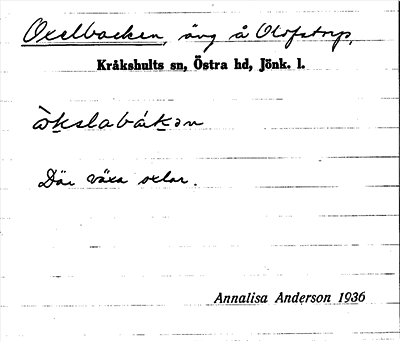 Oxelbacken, äng å Olofstorp,
Kråkshults sn, Östra hd, Jönk. l.
òkslabákən
Där växa oxlar.
Annalisa Anderson 1936